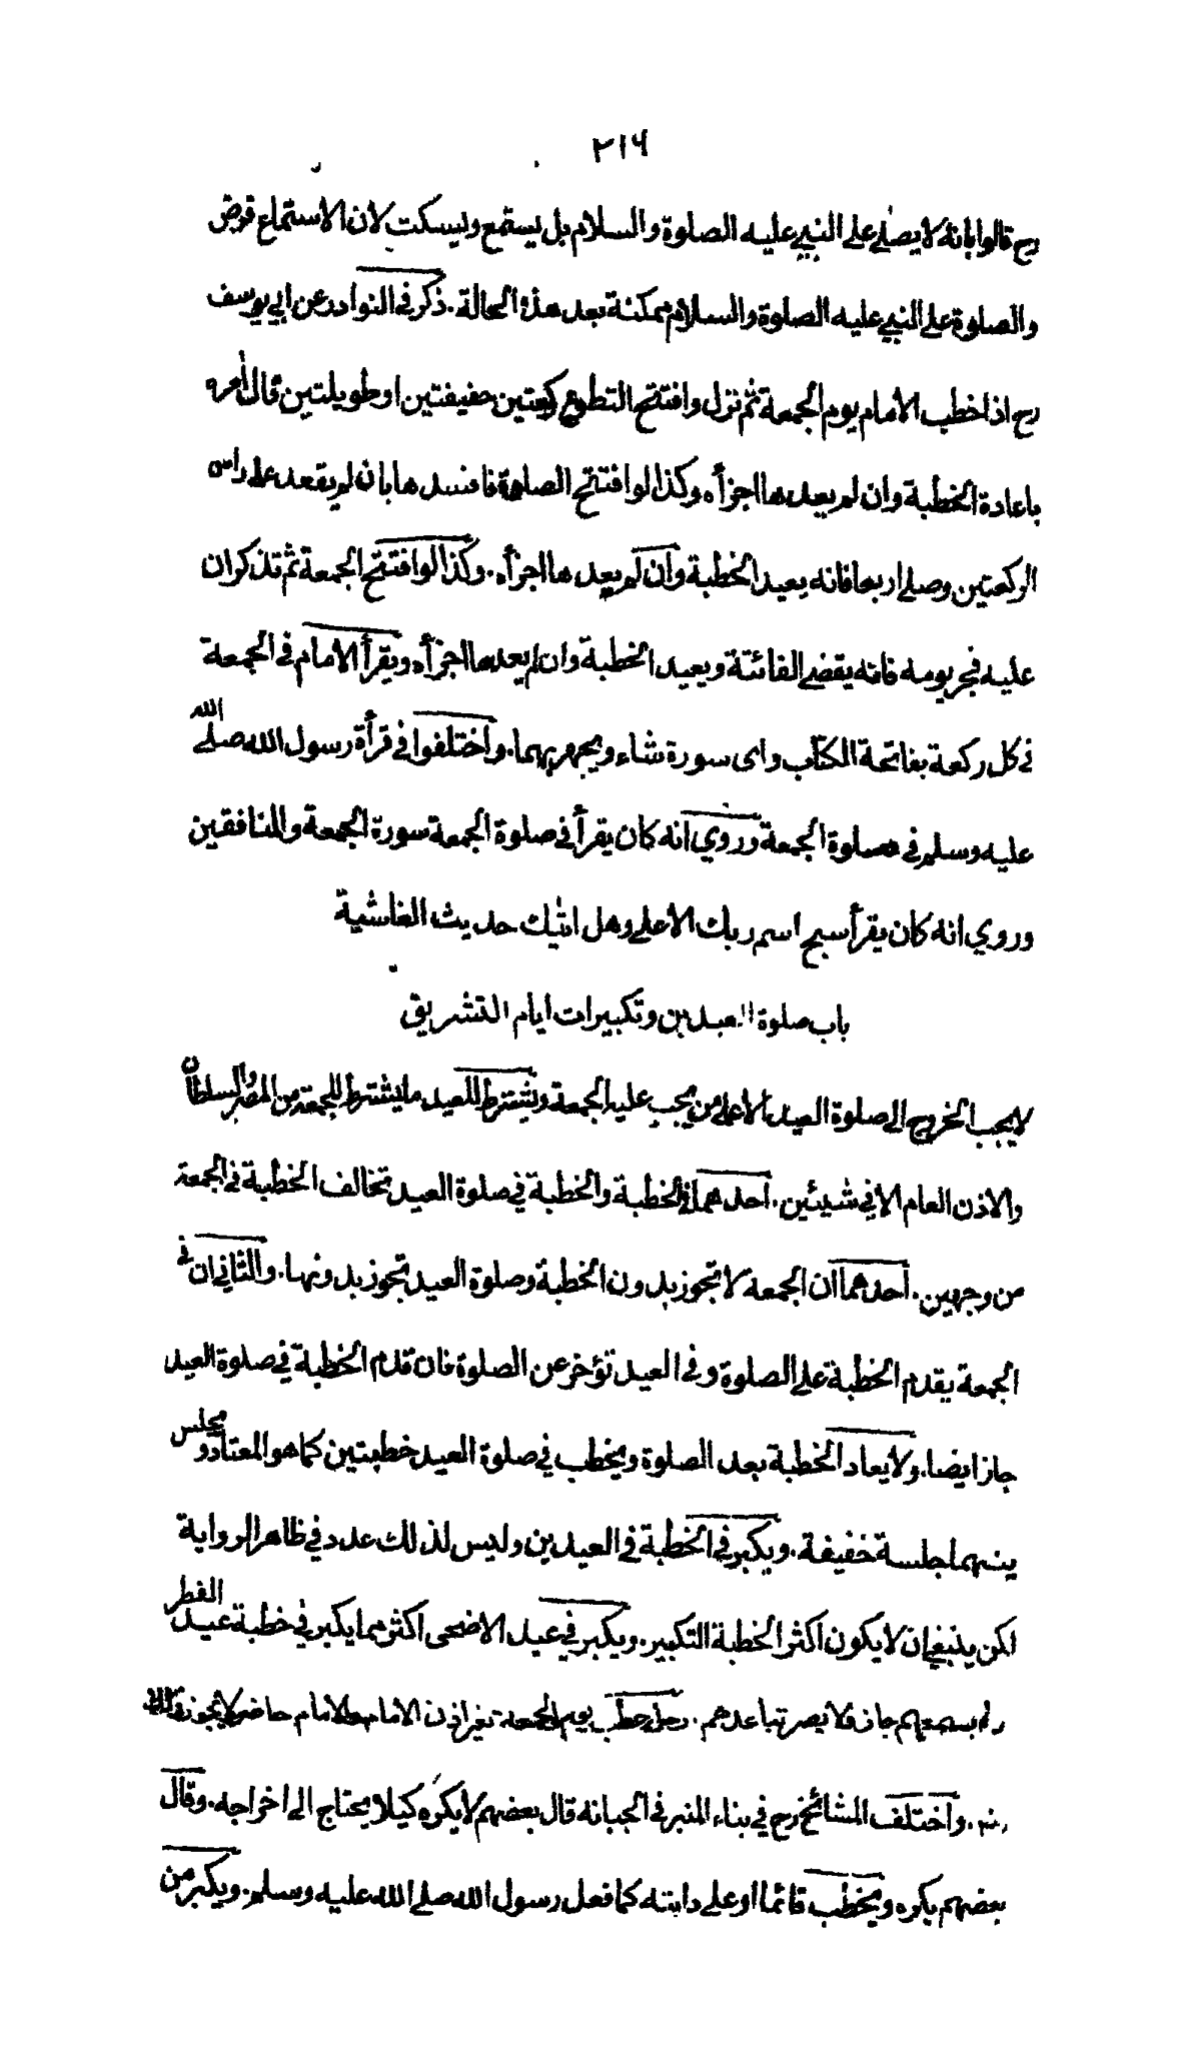 ٢١٦
رح قالوا بانه لا يصلى على النبي عليه الصلوة والسلام بل يستمع ويسكت لان الاستماع فرض
والصلوة على النبي عليه الصلوة والسلام ممكنة بعد هذه الحالة. ذكر في النوادر عن ابي يوسف
رح اذا خطب الامام يوم الجمعة ثم نزل وافتتح التطوع ركعتين خفيفتين او طويلتين قال أمره
باعادة الخطبة وان لم يعدها اجزأه وكذا لو افتتح الصلوة فافسدها بان لم يقعد على راس
الركعتين وصلى اربعا فانه يعيد الخطبة وان لم يعدها اجزأه. وكذا لو افتتح الجمعة ثم تذكر ان
عليه فجر يومه فانه يقضي الفائتة ويعيد الخطبة وان لم يعدها اجزأه ويقرأ الامام في الجمعة
في كل ركعة بفاتحة الكتاب واى سورة شاء ويجهر بهما. واختلفوا في قرأة رسول الله صلى الله
عليه وسلم في صلوة الجمعة وروي انه كان يقرأ في صلوة الجمعة سورة الجمعة والمنافقين
وروي انه كان يقرأ سبح اسم ربك الاعلى وهل اتيك حديث الغاشية
باب صلوة العيدين وتكبيرات ايام التشريق
لا يجب الخروج الى صلوة العيد الا على من يجب عليه الجمعة ويشترط للعيد ما يشترط للجمعة من المصر والسلطان
والاذن العام الا في شيئين. احدهما في الخطبة والخطبة في صلوة العيد تخالف الخطبة في الجمعة
من وجهين. احدهما ان الجمعة لا تجوز بدون الخطبة وصلوة العيد تجوز بدونها. والثاني ان في
الجمعة يقدم الخطبة على الصلوة وفي العيد تؤخر عن الصلوة فان قدم الخطبة في صلوة العيد
جاز ايضا. ولا يعاد الخطبة بعد الصلوة ويخطب في صلوة العيد خطبتين كما هو المعتاد ويجلس
بينهما جلسة خفيفة. ويكبر في الخطبة في العيدين وليس لذلك عدد في ظاهر الرواية
لكن ينبغي ان لا يكون اكثر الخطبة التكبير. ويكبر في عيد الاضحى اكثر مما يكبر في خطبة عيد الفطر
جاز ولا يضر تباعدهم. رجل خطب يوم الجمعة بغير اذن الامام والامام حاضر لا يجوز
واختلف المشائخ رح في بناء المنبر في الجبانة قال بعضهم لا يكره كيلا يحتاج الى اخراجه. وقال
بعضهم يكره ويخطب قائما او على دابته كما فعل رسول الله صلى الله عليه وسلم. ويكبر من